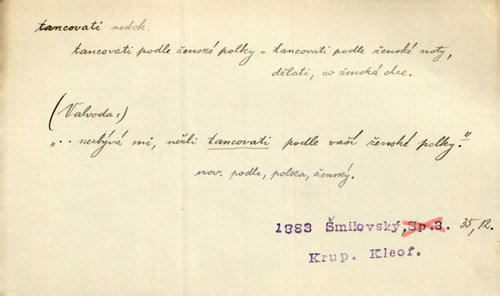 tancovati nedok.
tancovati podle ženské polky = tancovati podle ženské noty,
dělati, co ženská chce.
(Valvoda:)
„.. nezbývá mi, nežli tancovati podle vaší ženské polky."
srov. podle, polka, ženský.
1883 Šmilovský, Sp.3. 35,12.
Krup. Kleof.